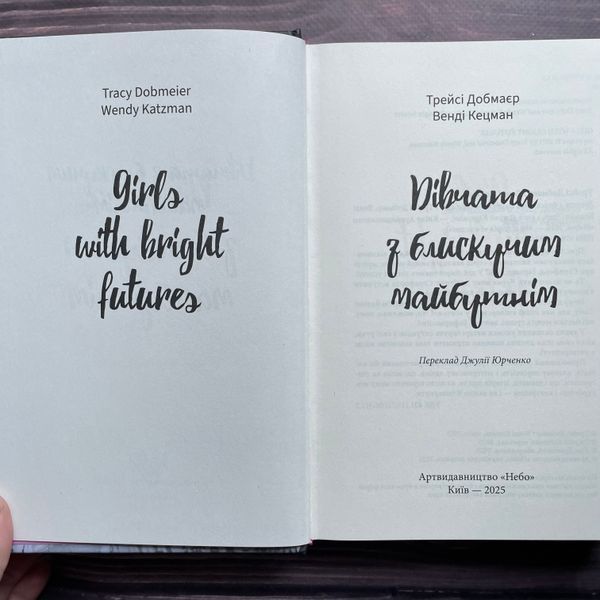 Tracy Dobmeier
Wendy Katzman
Girls
with bright
futures
Трейсі Добмаєр
Венді Кецман
Дівчата
з блискучим
майбутнім
Переклад Джулії Юрченко
Артвидавництво «Небо»
Київ — 2025